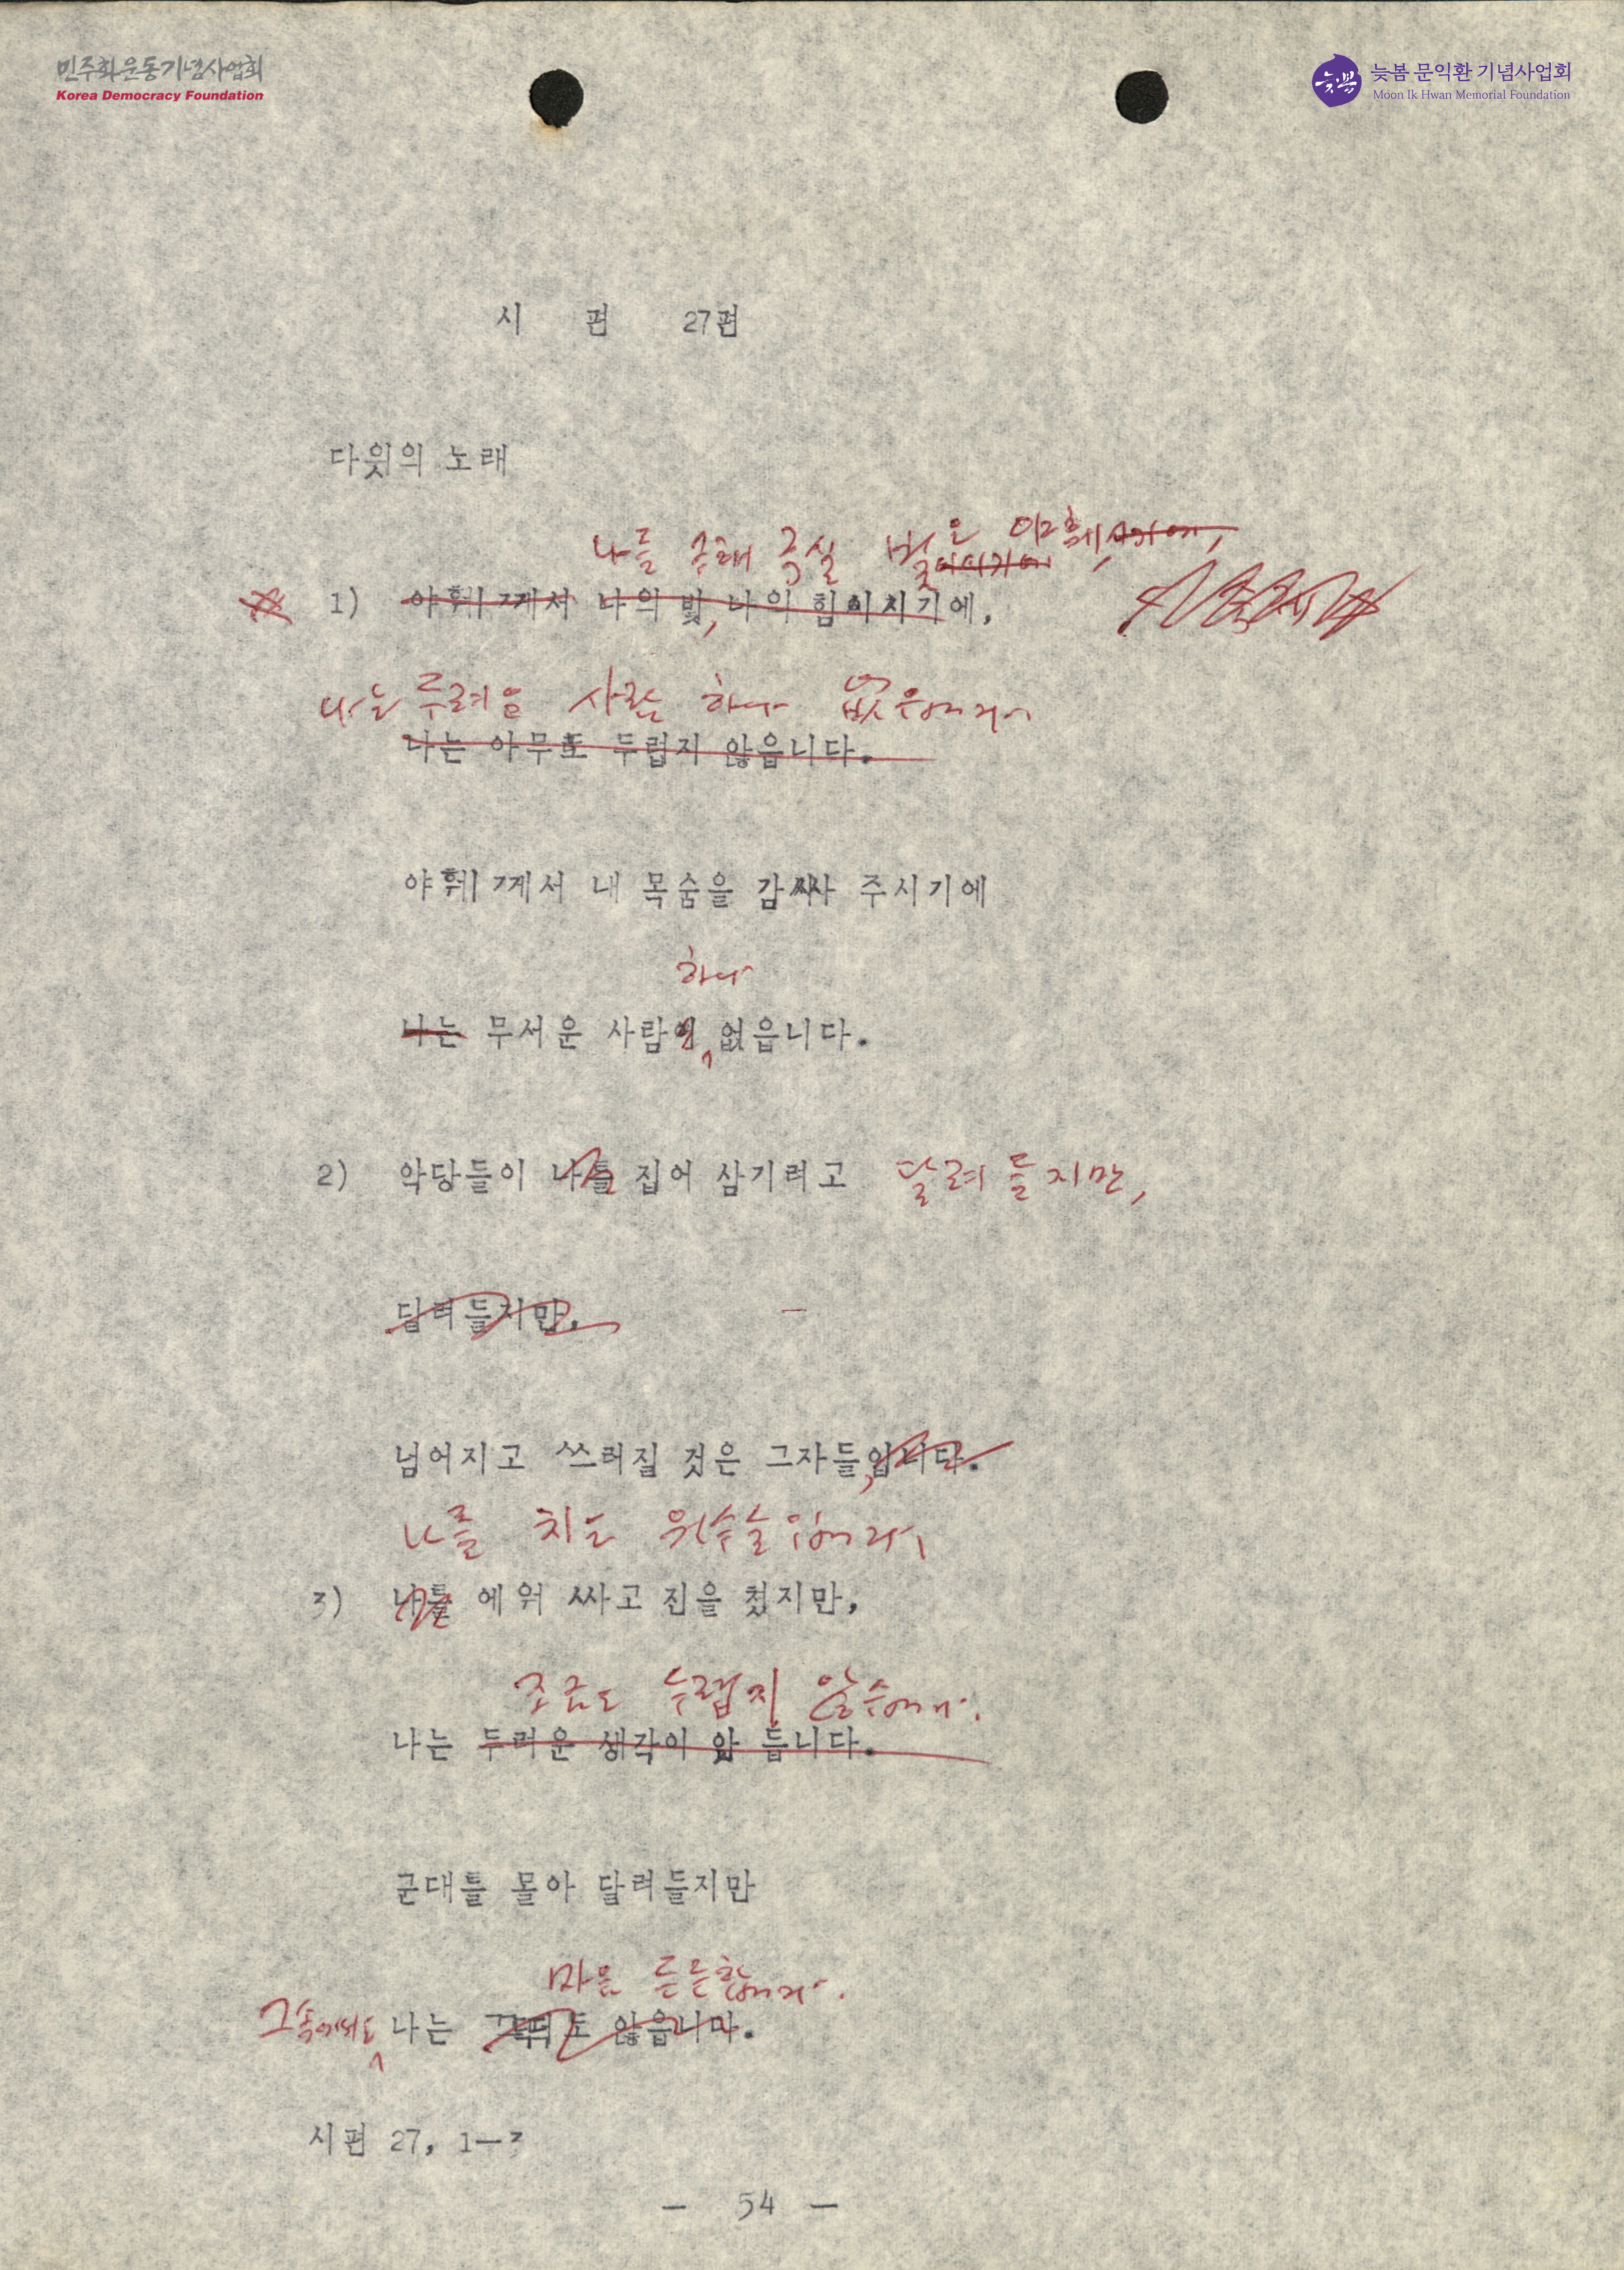 민주화운동기념사업회
Korea Democracy Foundation
늦봄
늦봄 문익환 기념사업회
Moon Ik Hwan Memorial Foundation
시 편 27편
다윗의 노래
나를 구해 주실 빛은 야훼,
1) 야훼께서 나의 빛, 나의 힘이시기에,
나는 두려울 사람 하나 없읍니다
나는 아무도 두렵지 않읍니다.
야훼께서 내 목숨을 감싸 주시기에
하나
나는 무서운 사람이 없읍니다.
2) 악당들이 나를 집어 삼키려고 달려 들지만,
달려들지만,
넘어지고 쓰러질 것은 그자들입니다.
나를 치는 원수들입니다
3) 나를 에워 싸고 진을 쳤지만,
조금도 두렵지 않습니다.
나는 두려운 생각이 안 듭니다.
군대를 몰아 달려들지만
마음 든든합니다.
그 속에서도 나는 않읍니다.
시편 27, 1—3
— 54 —